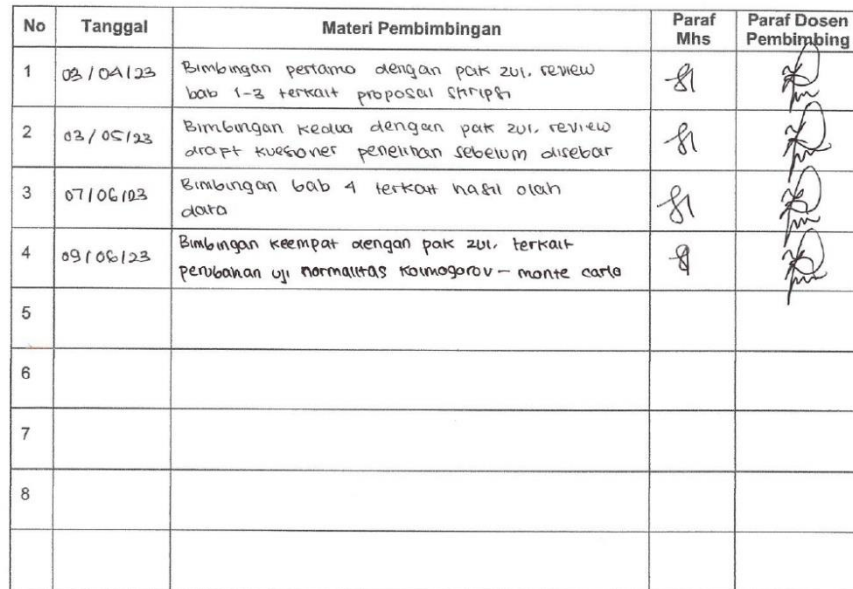 No Tanggal Materi Pembimbingan Paraf Mhs Paraf Dosen Pembimbing
1 03/04/23 Bimbingan pertama dengan pak zul, review
bab 1-3 terkait proposal skripsi
2 03/05/23 Bimbingan kedua dengan pak zul, review
drapt kuesioner penelitian sebelum disebar
3 07/06/23 Bimbingan bab 4 terkait hasil olah
data
4 09/06/23 Bimbingan keempat dengan pak zul, terkait
perubahan uji normalitas kolmogorov - monte carlo
5
6
7
8